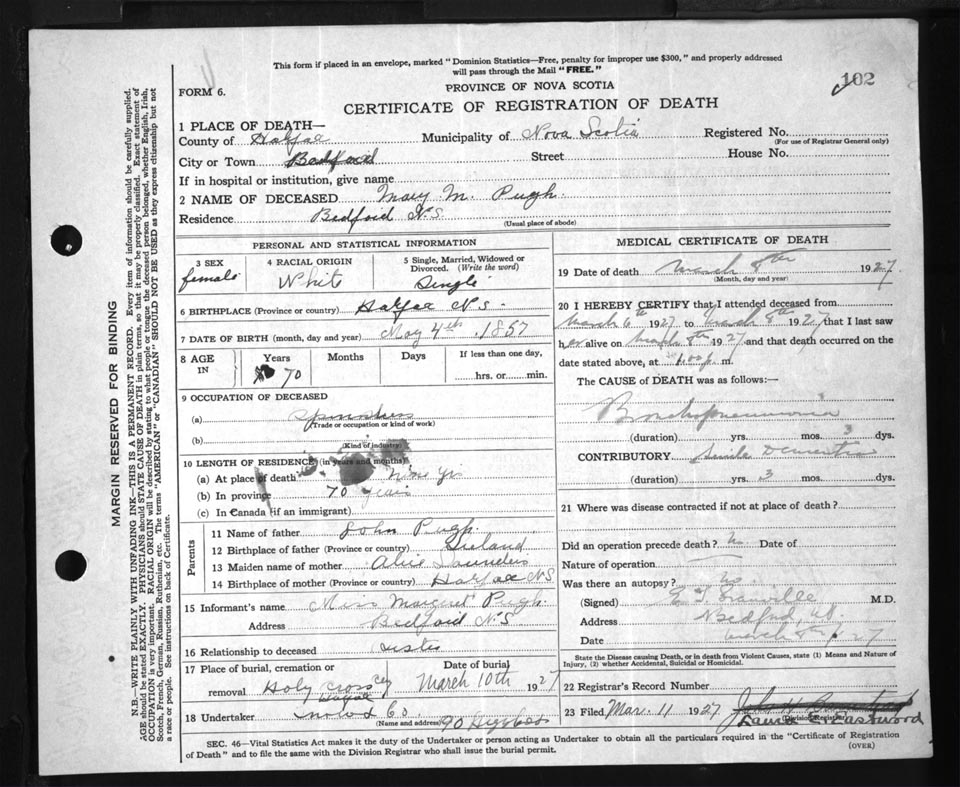 This form if placed in an envelope, marked "Dominion Statistics—Free, penalty for improper use $300," and properly addressed
will pass through the Mail "FREE."
102
FORM 6.
PROVINCE OF NOVA SCOTIA
CERTIFICATE OF REGISTRATION OF DEATH
1 PLACE OF DEATH—
County of Halifax Municipality of Nova Scotia Registered No.
(For use of Registrar General only)
City or Town Bedford Street House No.
If in hospital or institution, give name
2 NAME OF DECEASED Mary M. Pugh
Residence Bedford N.S.
(Usual place of abode)
PERSONAL AND STATISTICAL INFORMATION
3 SEX 4 RACIAL ORIGIN 5 Single, Married, Widowed or Divorced. (Write the word)
female White Single
6 BIRTHPLACE (Province or country) Halifax N.S.
7 DATE OF BIRTH (month, day and year) May 4th 1857
8 AGE IN Years Months Days If less than one day,
70 hrs. or min.
9 OCCUPATION OF DECEASED
(a) Spinster
(Trade or occupation or kind of work)
(b)
(Kind of industry)
10 LENGTH OF RESIDENCE (in years and months)
(a) At place of death Nine Yrs
(b) In province 70 years
(c) In Canada (if an immigrant)
Parents
11 Name of father John Pugh
12 Birthplace of father (Province or country) Ireland
13 Maiden name of mother Alice Saunders
14 Birthplace of mother (Province or country) Halifax N.S
15 Informant's name Miss Margaret Pugh
Address Bedford N.S
16 Relationship to deceased sister
17 Place of burial, cremation or removal Holy Cross Cey Halifax
Date of burial March 10th 1927
18 Undertaker Snow & Co
(Name and address) 90 Argyle St
MEDICAL CERTIFICATE OF DEATH
19 Date of death March 8th 1927
(Month, day and year)
20 I HEREBY CERTIFY that I attended deceased from
March 6th 1927 to March 8th 1927 that I last saw
her alive on March 8th 1927 and that death occurred on the
date stated above, at 1.00 p. m.
The CAUSE of DEATH was as follows:—
Bronchopneumonia
(duration) yrs. mos. 3 dys.
CONTRIBUTORY Senile Dementia
(duration) 3 yrs. mos. dys.
21 Where was disease contracted if not at place of death?
Did an operation precede death? No Date of
Nature of operation
Was there an autopsy? No.
(Signed) E. T. Granville M.D.
Address Bedford, N.S.
Date March 8th /27
State the Disease causing Death, or in death from Violent Causes, state (1) Means and Nature of
Injury, (2) whether Accidental, Suicidal or Homicidal.
22 Registrar's Record Number
23 Filed Mar. 11 1927
(Division Registrar)
Laura Eastwood
SEC. 46—Vital Statistics Act makes it the duty of the Undertaker or person acting as Undertaker to obtain all the particulars required in the "Certificate of Registration
of Death" and to file the same with the Division Registrar who shall issue the burial permit.
(OVER)
MARGIN RESERVED FOR BINDING
N.B.—WRITE PLAINLY WITH UNFADING INK—THIS IS A PERMANENT RECORD. Every item of information should be carefully supplied.
AGE should be stated EXACTLY. PHYSICIANS should STATE CAUSE OF DEATH in plain terms, so that it may be properly classified. Exact statement of
OCCUPATION is very important. RACIAL ORIGIN will be described by stating to what people or tongue the deceased person belonged, whether English, Irish,
Scotch, French, German, Russian, Ruthenian, etc. The terms "AMERICAN" or "CANADIAN" SHOULD NOT BE USED as they express citizenship but not
a race or people. See instructions on back of Certificate.